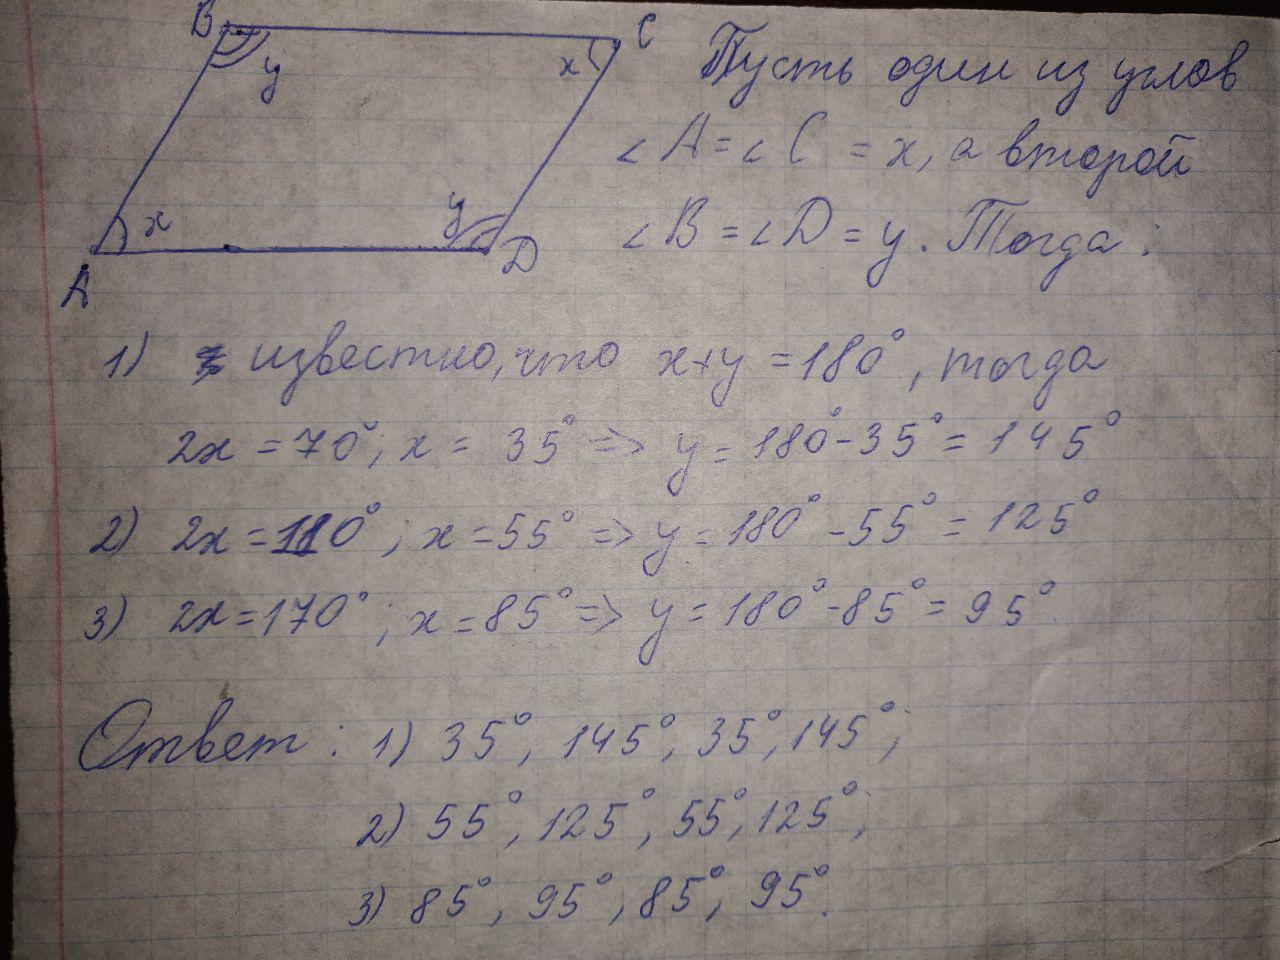 B
C
y
x
Пусть один из углов
∠A=∠C = x, а второй
x
y
∠B=∠D=y. Тогда:
A
D
1) известно, что x+y=180°, тогда
2x=70°; x = 35° => y=180°-35°=145°
2) 2x=110°; x=55° => y=180°-55°=125°
3) 2x=170°; x=85° => y=180°-85°=95°.
Ответ: 1) 35°, 145°, 35°, 145°;
2) 55°, 125°, 55°, 125°;
3) 85°, 95°, 85°, 95°.